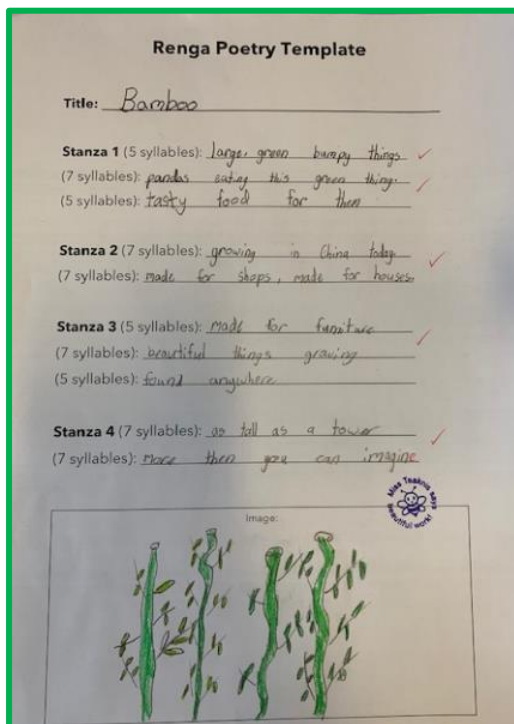 Renga Poetry Template
Title: Bamboo
Stanza 1 (5 syllables): large, green bumpy things
(7 syllables): pandas eating this green thing.
(5 syllables): tasty food for then
Stanza 2 (7 syllables): growing in China today
(7 syllables): made for shops, made for houses.
Stanza 3 (5 syllables): made for furniture
(7 syllables): beautiful things growing
(5 syllables): found anywhere
Stanza 4 (7 syllables): as tall as a tower
(7 syllables): more then you can imagine
Miss says beautiful work!
Image: